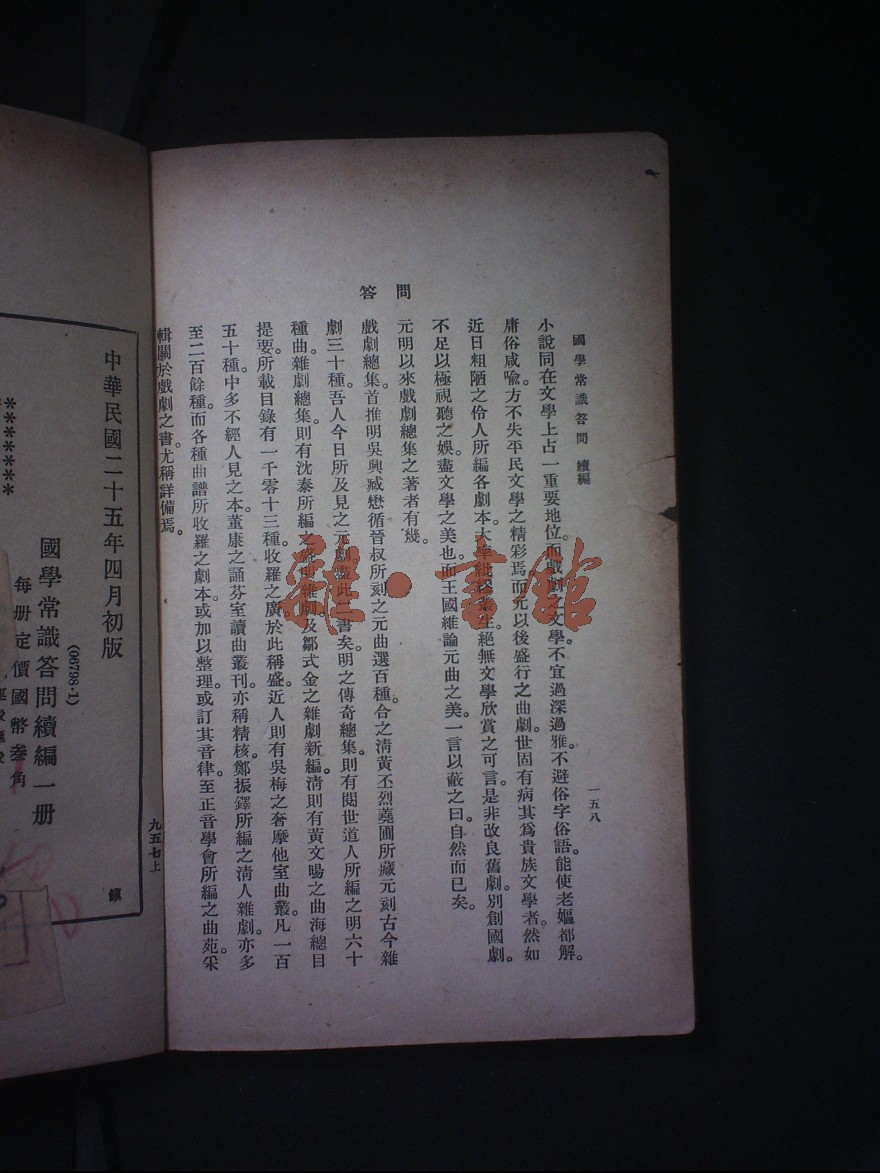 國學常識答問 續編
一五八
小說同在文學上占一重要地位。而戲劇之文學。不宜過深過雅。不避俗字俗語。能使老嫗都解。
庸俗咸喩。方不失平民文學之精彩焉。而元以後盛行之曲劇。世固有病其爲貴族文學者。然如
近日粗陋之伶人所編各劇本。大率紕繆叢生。絕無文學欣賞之可言。是非改良舊劇。別創國劇。
不足以極視聽之娛。盡文學之美也。而王國維論元曲之美。一言以蔽之曰。自然而已矣。
問
元明以來戲劇總集之著者有幾。
答
戲劇總集。首推明吳興臧懋循晉叔所刻之元曲選百種。合之淸黃丕烈蕘圃所藏元刻古今雜
劇三十種。吾人今日所及見之元劇。盡此二書矣。明之傳奇總集。則有閱世道人所編之明六十
種曲。雜劇總集。則有沈泰所編之盛明雜劇。及鄒式金之雜劇新編。淸則有黃文暘之曲海總目
提要。所載目錄有一千零十三種。收羅之廣。於此稱盛。近人則有吳梅之奢摩他室曲叢。凡一百
五十種。中多不經人見之本。董康之誦芬室讀曲叢刊。亦稱精核。鄭振鐸所編之淸人雜劇。亦多
至二百餘種。而各種曲譜所收羅之劇本。或加以整理。或訂其音律。至正音學會所編之曲苑。采
輯關於戲劇之書。尤稱詳備焉。
中華民國二十五年四月初版
******
(06798·1)
國學常識答問續編一册
每册定價國幣叁角
九五七上
雜·書館